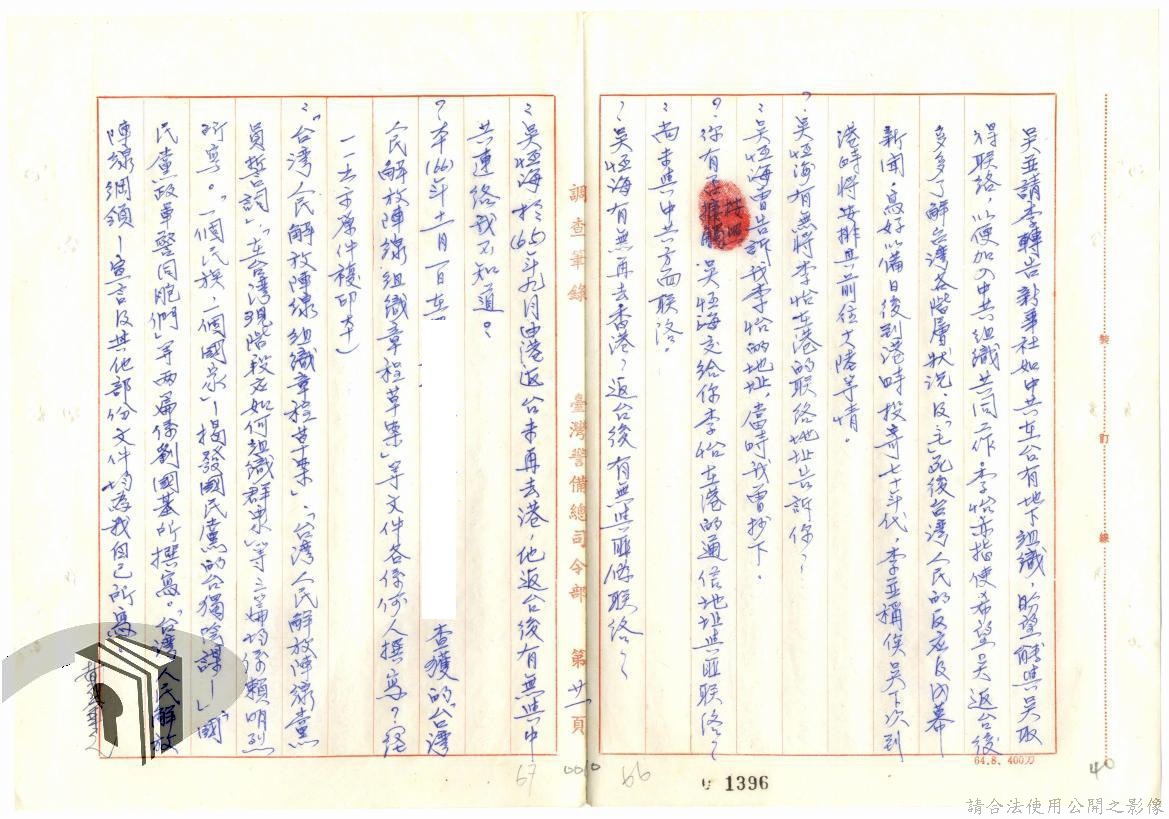 吳並請李轉告新華社如中共在台有地下組織，盼望能與吳取
得联络，以便加入中共組織共同工作。李怡亦指使希望吳返台後
多多了解台湾各階層狀況，及「毛」死後台湾人民的反应及內幕
新聞，寫好以備日後到港時投寄七十年代，李並稱俟吳下次到
港時將安排與前往大陸等情。
？吳恒海有無將李怡在港的联络地址告訴你？
：吳恒海曾告訴我李怡的地址，當時我曾抄下。
？你有否據 吳恒海交给你李怡在港的通信地址與匪联络？
：尚未與中共方面联络。
？吳恒海有無再去香港？返台後有無與匪僞联络？
調查筆錄 臺灣警備總司令部 第廿一頁
：吳恒海於(65)年九月由港返台未再去港，他返台後有無與中
共連络我不知道。
？本(66)年十一月一日在 查獲的「台湾
人民解放陣線組織章程草案」等文件各係何人撰寫？(經
一一去示原件複印本)
：「台湾人民解放陣線組織章程草案」、「台湾人民解放陣線黨
員誓詞」、「在台湾現階段应如何組織群眾」等三篇均係賴明烈
所寫。「一個民族，一個國家」—揭發國民黨的台獨陰謀—「國
民黨政軍警同胞們」等两篇係劉國基所撰寫。「台湾人民解放
陣線綱領」—宣言及其他部份文件均為我自己所寫。
裝 訂 線
64.8、400刀
67 0010 66
1396
40
請合法使用公開之影像